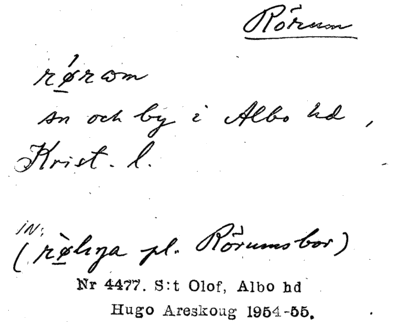 Rörum
rø̀rωm
sn och by i Albo hd,
Krist. l.
IN:
( pl. Rörumsbor)
Nr 4477. S:t Olof, Albo hd
Hugo Areskoug 1954-55.